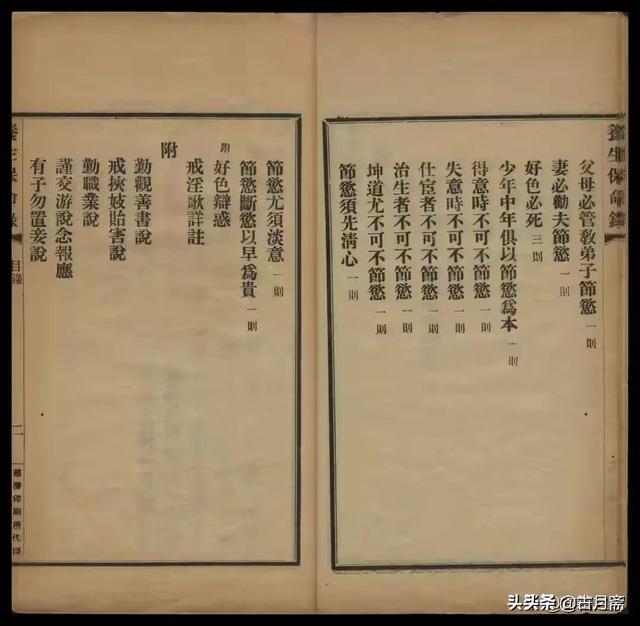 養生保命錄
父母必管教弟子節慾 一則
妻必勸夫節慾 一則
好色必死 三則
少年中年俱以節慾爲本 一則
得意時不可不節慾 一則
失意時不可不節慾 一則
仕宦者不可不節慾 一則
治生者不可不節慾 一則
坤道尤不可不節慾 一則
節慾須先清心 一則
節慾尤須淡意 一則
節慾斷慾以早爲貴 一則
附 好色辯惑
戒淫歌詳註
附
勤觀善書說
戒挾妓貽害說
勤職業說
謹交游說念報應
有子勿置妾說
養生保命錄 目錄 二
印刷所代印
头条 @古月斋